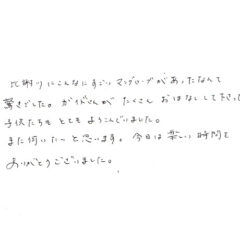 比謝川にこんなにすごいマングローブがあったなんて
驚きでした。ガイドさんが たくさん おはなしして下さって
子供たちも とても よろこんでいました。
また伺いたいと思います。今日は楽しい時間を
ありがとうございました。